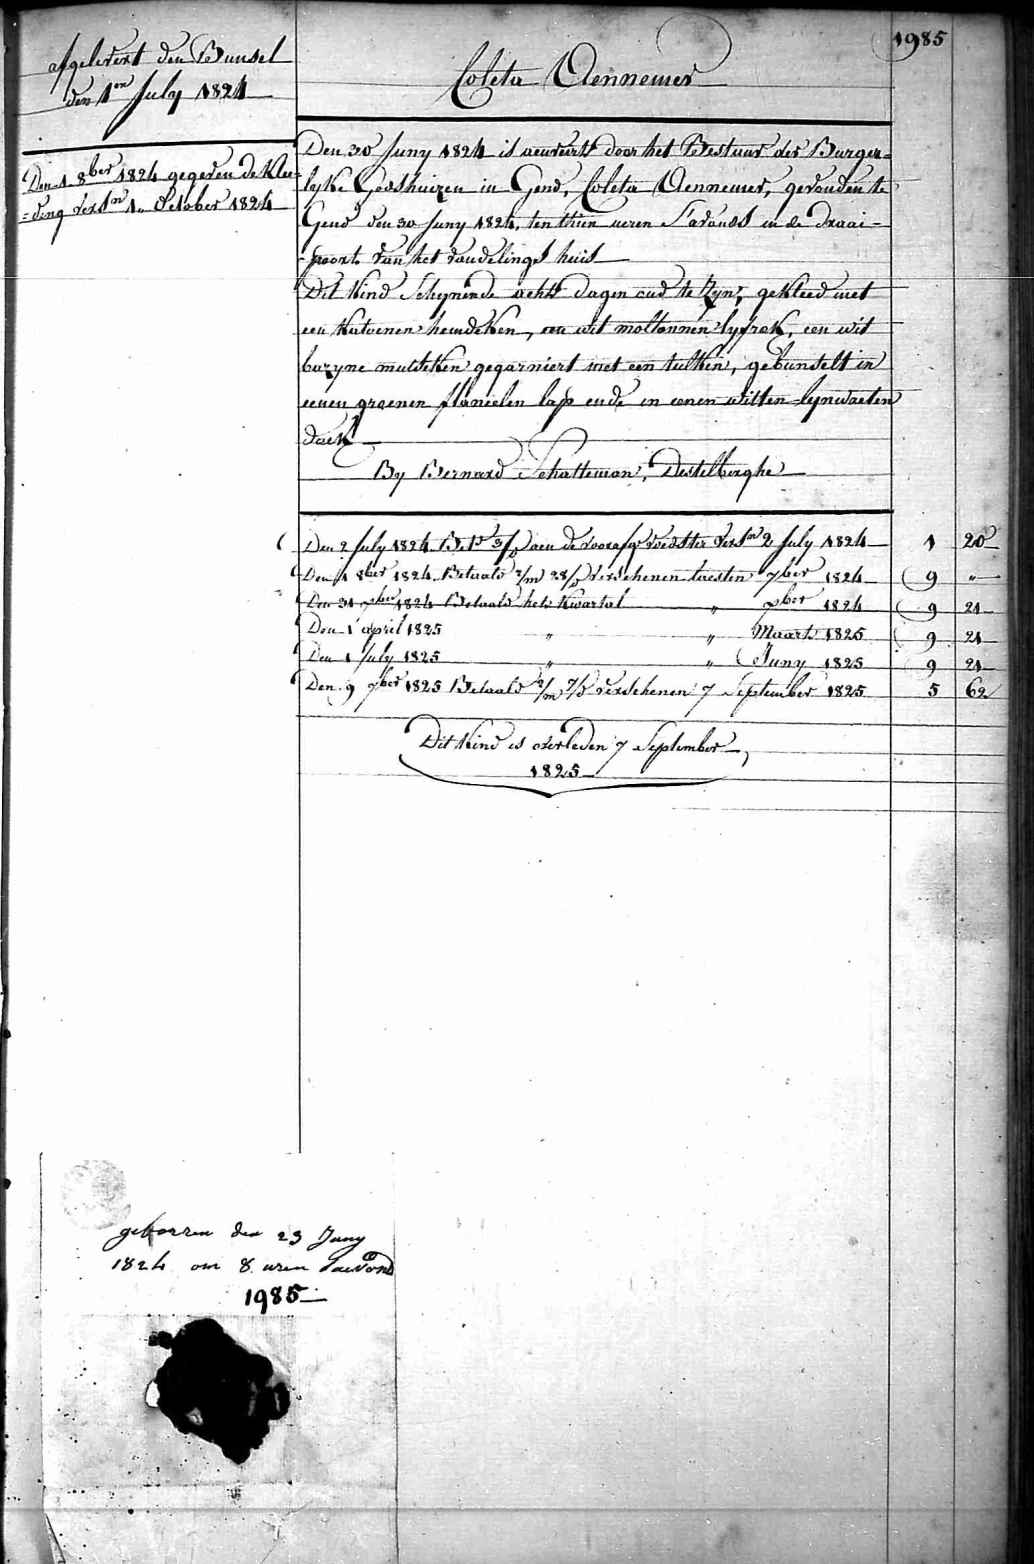 1985
afgelevert den Bunsel
den 1en July 1824
Coleta Aennemer
Den 1 8ber 1824 gegeven de Klee=
=ding verst 1 October 1824
Den 30 Juny 1824 is aenveirt door het Bestuur der Burger=
lyke Godshuizen in Gend, Coleta Aennemer, gevonden te
Gend den 30 Juny 1824, ten thien uren S'avonds in de draai=
=poort van het vondelings huis
Dit Kind Schynende acht dagen oud te Zyn, gekleed met
een Katoenen hemdeken, een wit moltonnen lyfrok, een wit
bazyne mutsken gegarniert met een tulken, gebunselt in
eenen groenen flaneelen lap ende in eenen witten lynwaeten
doek
By Bernard Schatteman, Destelberghe
Den 2 July 1824 Bet. aen de voedster verst 2 July 1824 1 20
Den 1 8ber 1824 Betaald 2/m 28/d verschenen laesten 7ber 1824 9 "
Den 31 1824 Betaald het Kwartal " 1824 9 21
Den 1 april 1825 " " Maart 1825 9 21
Den 1 July 1825 " " Juny 1825 9 21
Den 9 7ber 1825 Betaald 2/m 7/d verschenen 7 September 1825 5 62
Dit Kind is overleden 7 September
1825
geborren den 23 Juny
1824 om 8 uren savond
1985